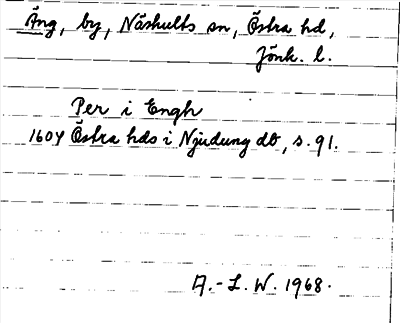 Äng, by, Näshults sn, Östra hd,
Jönk. l.
Per i Engh
1604 Östra hds i Njudung db, s. 91.
A.-L. W. 1968.